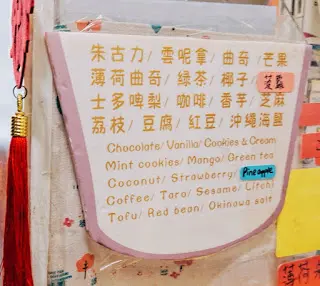 朱古力/ 雲呢拿/ 曲奇/ 芒果
薄荷曲奇/ 綠茶/ 椰子/ 菠蘿
士多啤梨/ 咖啡/ 香芋/ 芝麻
荔枝/ 豆腐/ 紅豆/ 沖繩海鹽
Chocolate/ Vanilla/ Cookies & Cream
Mint cookies/ Mango/ Green tea
Coconut/ Strawberry/ Pineapple
Coffee/ Taro/ Sesame/ Litchi
Tofu/ Red bean/ Okinawa salt
薄荷